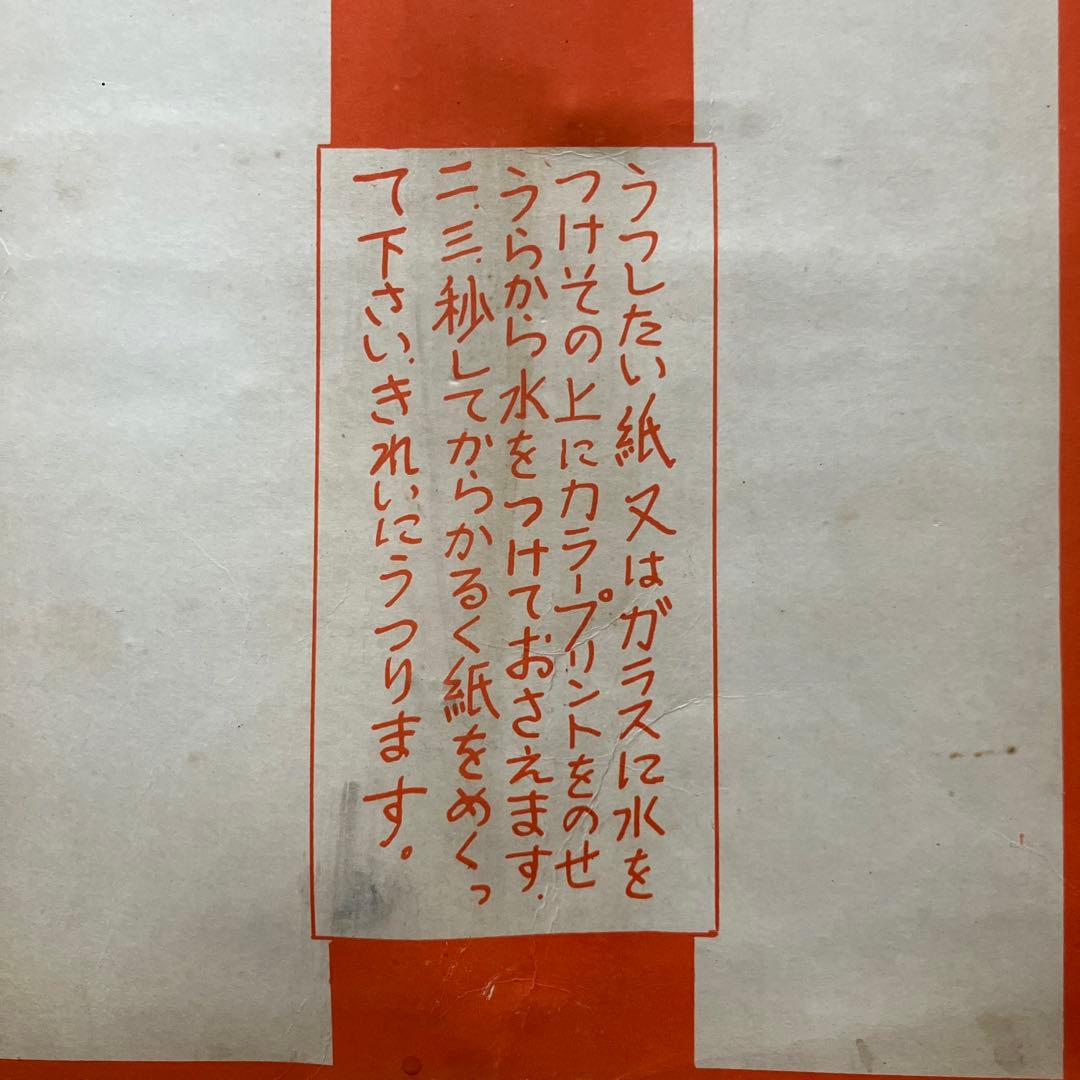 うつしたい紙又はガラスに水を
つけその上にカラープリントをのせ
うらから水をつけておさえます.
二.三.秒してからかるく紙をめくっ
て下さい.きれいにうつります。